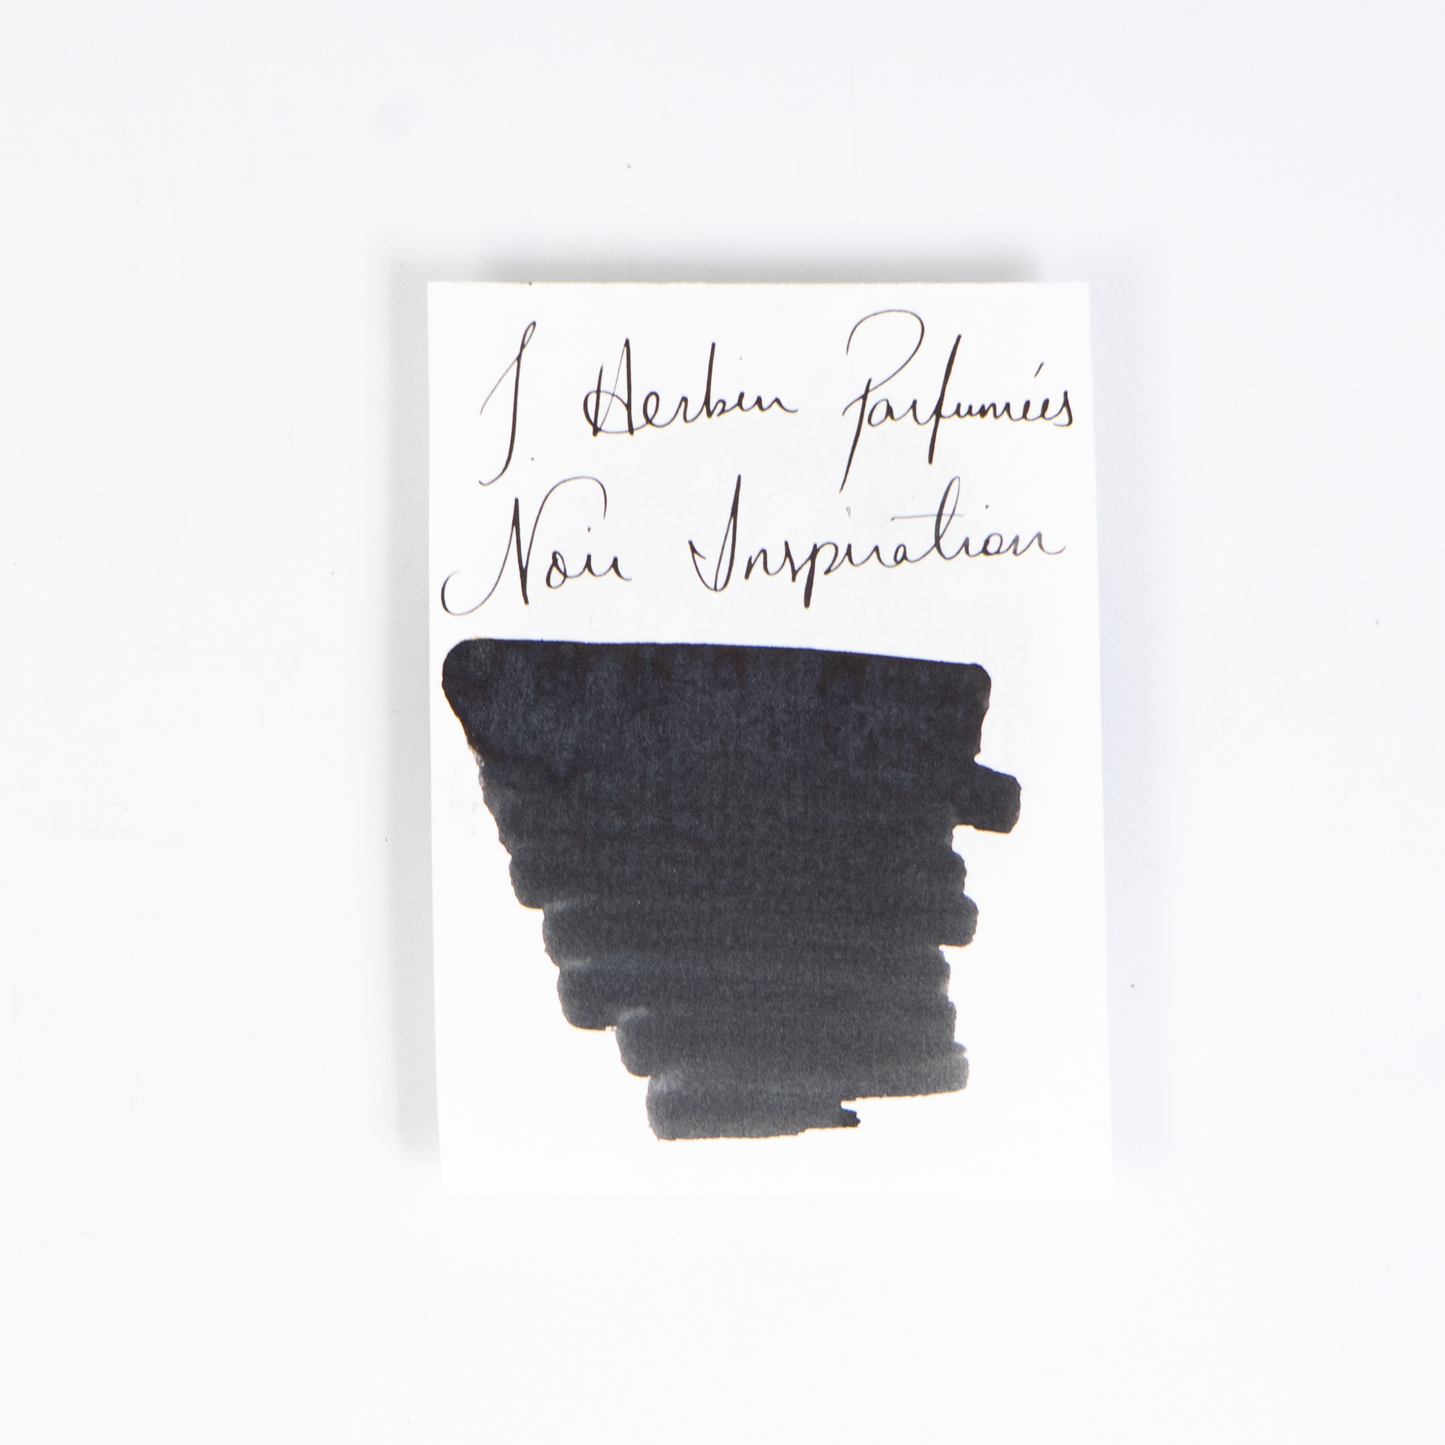 J. Herbin Parfumées
Noir Inspiration